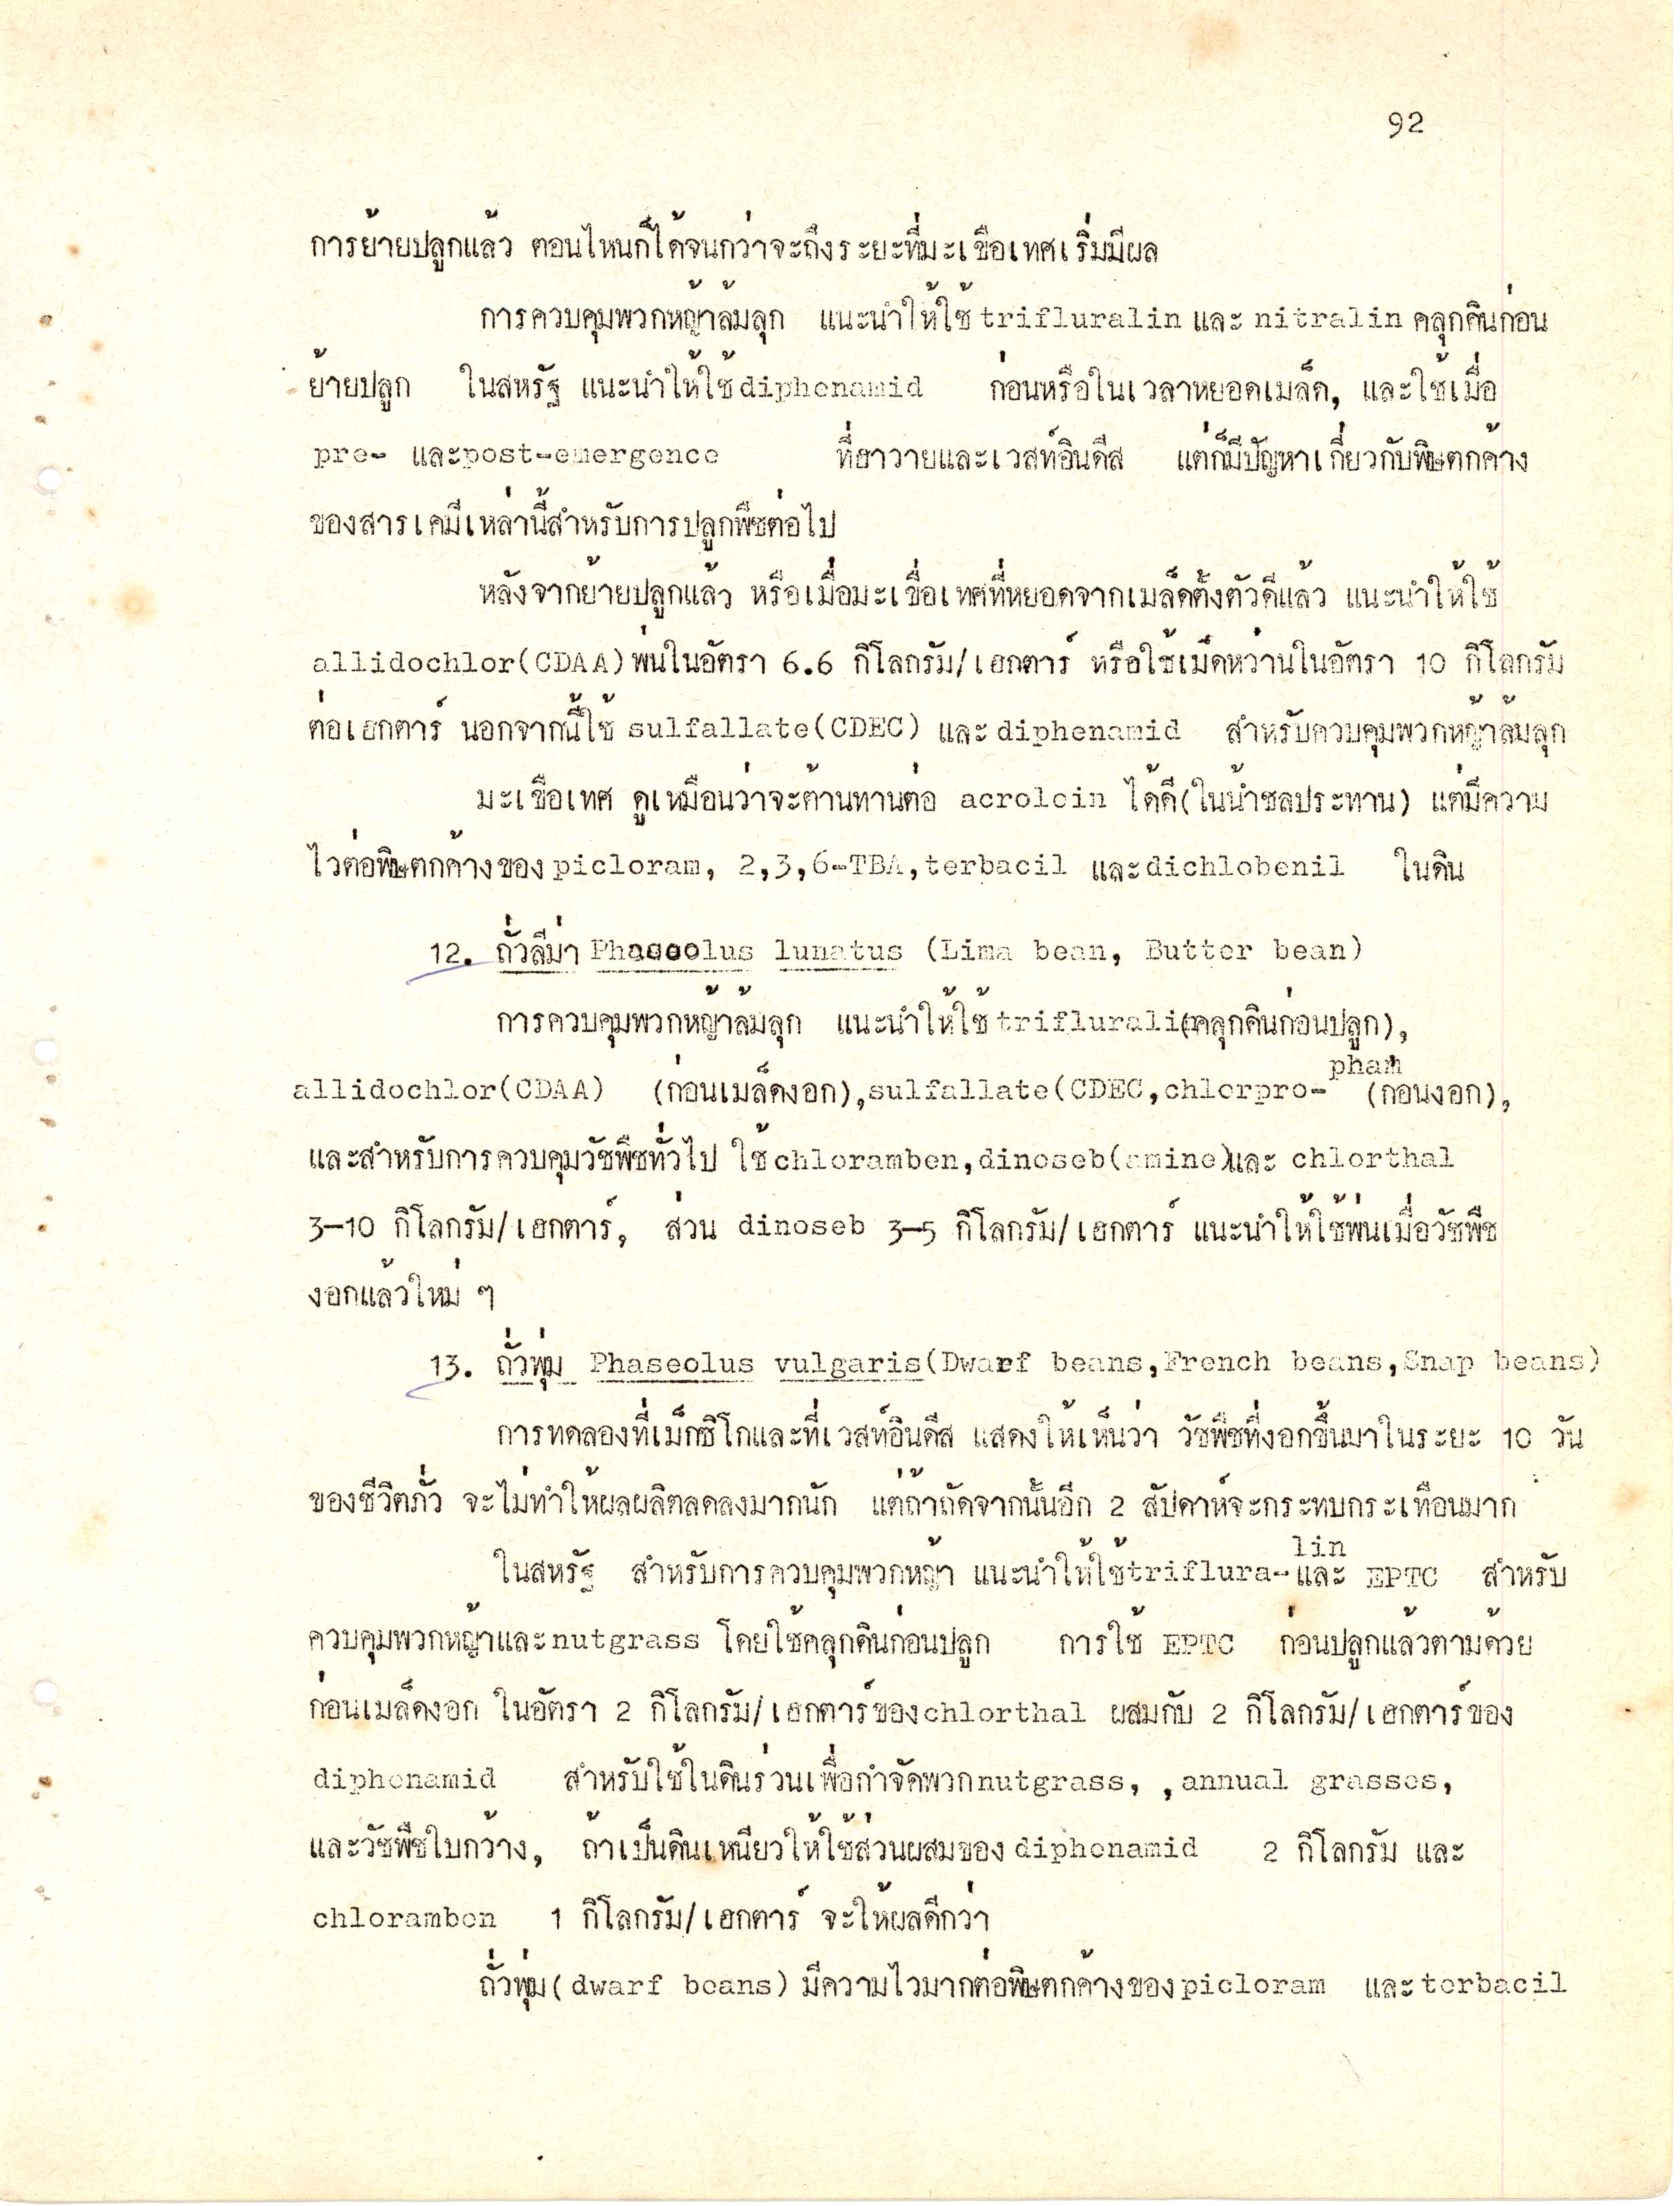 92
การย้ายปลูกแล้ว ตอนไหนก็ได้จนกว่าจะถึงระยะที่มะเขือเทศเริ่มมีผล
การควบคุมพวกหญ้าล้มลุก แนะนำให้ใช้ trifluralin และ nitralin คลุกดินก่อน
ย้ายปลูก ในสหรัฐ แนะนำให้ใช้ diphenamid ก่อนหรือในเวลาหยอดเมล็ด, และใช้เมื่อ
pre- และ post-emergence ที่ฮาวายและเวสท์อินดีส แต่ก็มีปัญหาเกี่ยวกับพิษตกค้าง
ของสารเคมีเหล่านี้สำหรับการปลูกพืชต่อไป
หลังจากย้ายปลูกแล้ว หรือเมื่อมะเขือเทศที่หยอดจากเมล็ดตั้งตัวดีแล้ว แนะนำให้ใช้
allidochlor(CDAA) พ่นในอัตรา 6.6 กิโลกรัม/เฮกตาร์ หรือใช้เม็ดหว่านในอัตรา 10 กิโลกรัม
ต่อเฮกตาร์ นอกจากนี้ใช้ sulfallate(CDEC) และ diphenamid สำหรับควบคุมพวกหญ้าล้มลุก
มะเขือเทศ ดูเหมือนว่าจะต้านทานต่อ acrolein ได้ดี(ในน้ำชลประทาน) แต่มีความ
ไวต่อพิษตกค้างของ picloram, 2,3,6-TBA, terbacil และ dichlobenil ในดิน
12. ถั่วลีม่า Phaseolus lunatus (Lima bean, Butter bean)
การควบคุมพวกหญ้าล้มลุก แนะนำให้ใช้ trifluralin(คลุกดินก่อนปลูก),
allidochlor(CDAA) (ก่อนเมล็ดงอก), sulfallate(CDEC, chlorpro-pham (ก่อนงอก),
และสำหรับการควบคุมวัชพืชทั่วไป ใช้ chloramben, dinoseb(amine)และ chlorthal
3-10 กิโลกรัม/เฮกตาร์, ส่วน dinoseb 3-5 กิโลกรัม/เฮกตาร์ แนะนำให้ใช้พ่นเมื่อวัชพืช
งอกแล้วใหม่ ๆ
13. ถั่วพุ่ม Phaseolus vulgaris(Dwarf beans, French beans, Snap beans)
การทดลองที่เม็กซิโกและที่เวสท์อินดีส แสดงให้เห็นว่า วัชพืชที่งอกขึ้นมาในระยะ 10 วัน
ของชีวิตถั่ว จะไม่ทำให้ผลผลิตลดลงมากนัก แต่ถ้าถัดจากนั้นอีก 2 สัปดาห์จะกระทบกระเทือนมาก
ในสหรัฐ สำหรับการควบคุมพวกหญ้า แนะนำให้ใช้ triflura-lin และ EPTC สำหรับ
ควบคุมพวกหญ้าและ nutgrass โดยใช้คลุกดินก่อนปลูก การใช้ EPTC ก่อนปลูกแล้วตามด้วย
ก่อนเมล็ดงอก ในอัตรา 2 กิโลกรัม/เฮกตาร์ของ chlorthal ผสมกับ 2 กิโลกรัม/เฮกตาร์ของ
diphenamid สำหรับใช้ในดินร่วนเพื่อกำจัดพวก nutgrass, , annual grasses,
และวัชพืชใบกว้าง, ถ้าเป็นดินเหนียวให้ใช้ส่วนผสมของ diphenamid 2 กิโลกรัม และ
chloramben 1 กิโลกรัม/เฮกตาร์ จะให้ผลดีกว่า
ถั่วพุ่ม(dwarf beans) มีความไวมากต่อพิษตกค้างของ picloram และ terbacil